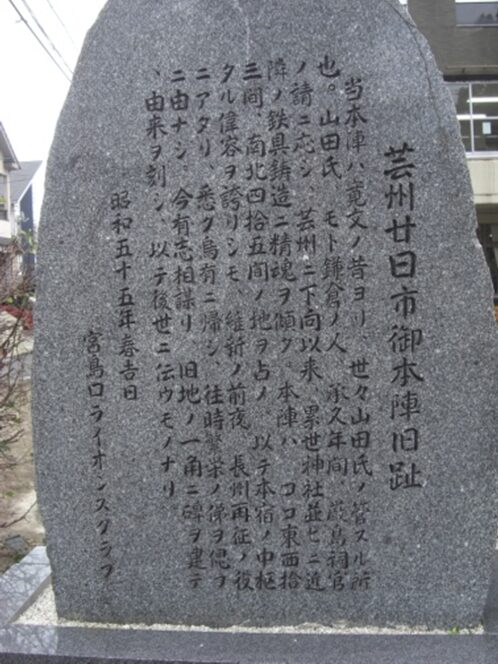 芸州廿日市御本陣旧趾
当本陣ハ寛文ノ昔ヨリ、世々山田氏ノ管スル所
也。山田氏、モト鎌倉ノ人、承久年間、厳島祠官
ノ請ニ応シ、芸州ニ下向以来、累世神社並ヒニ近
隣ノ鉄具鋳造ニ精魂ヲ傾ク。本陣ハ、ココ東西拾
三間、南北四拾五間ノ地ヲ占メ、以テ本宿ノ中枢
タル偉容ヲ誇リシモ、維新ノ前夜、長州再征ノ役
ニアタリ、悉ク烏有ニ帰シ、往時繁栄ノ俤ヲ偲ヲ
ニ由ナシ。今有志相謀リ、旧地ノ一角ニ碑ヲ建テ
、由来ヲ刻シ、以テ後世ニ伝ウモノナリ
昭和五十五年春吉日
宮島口ライオンズクラブ